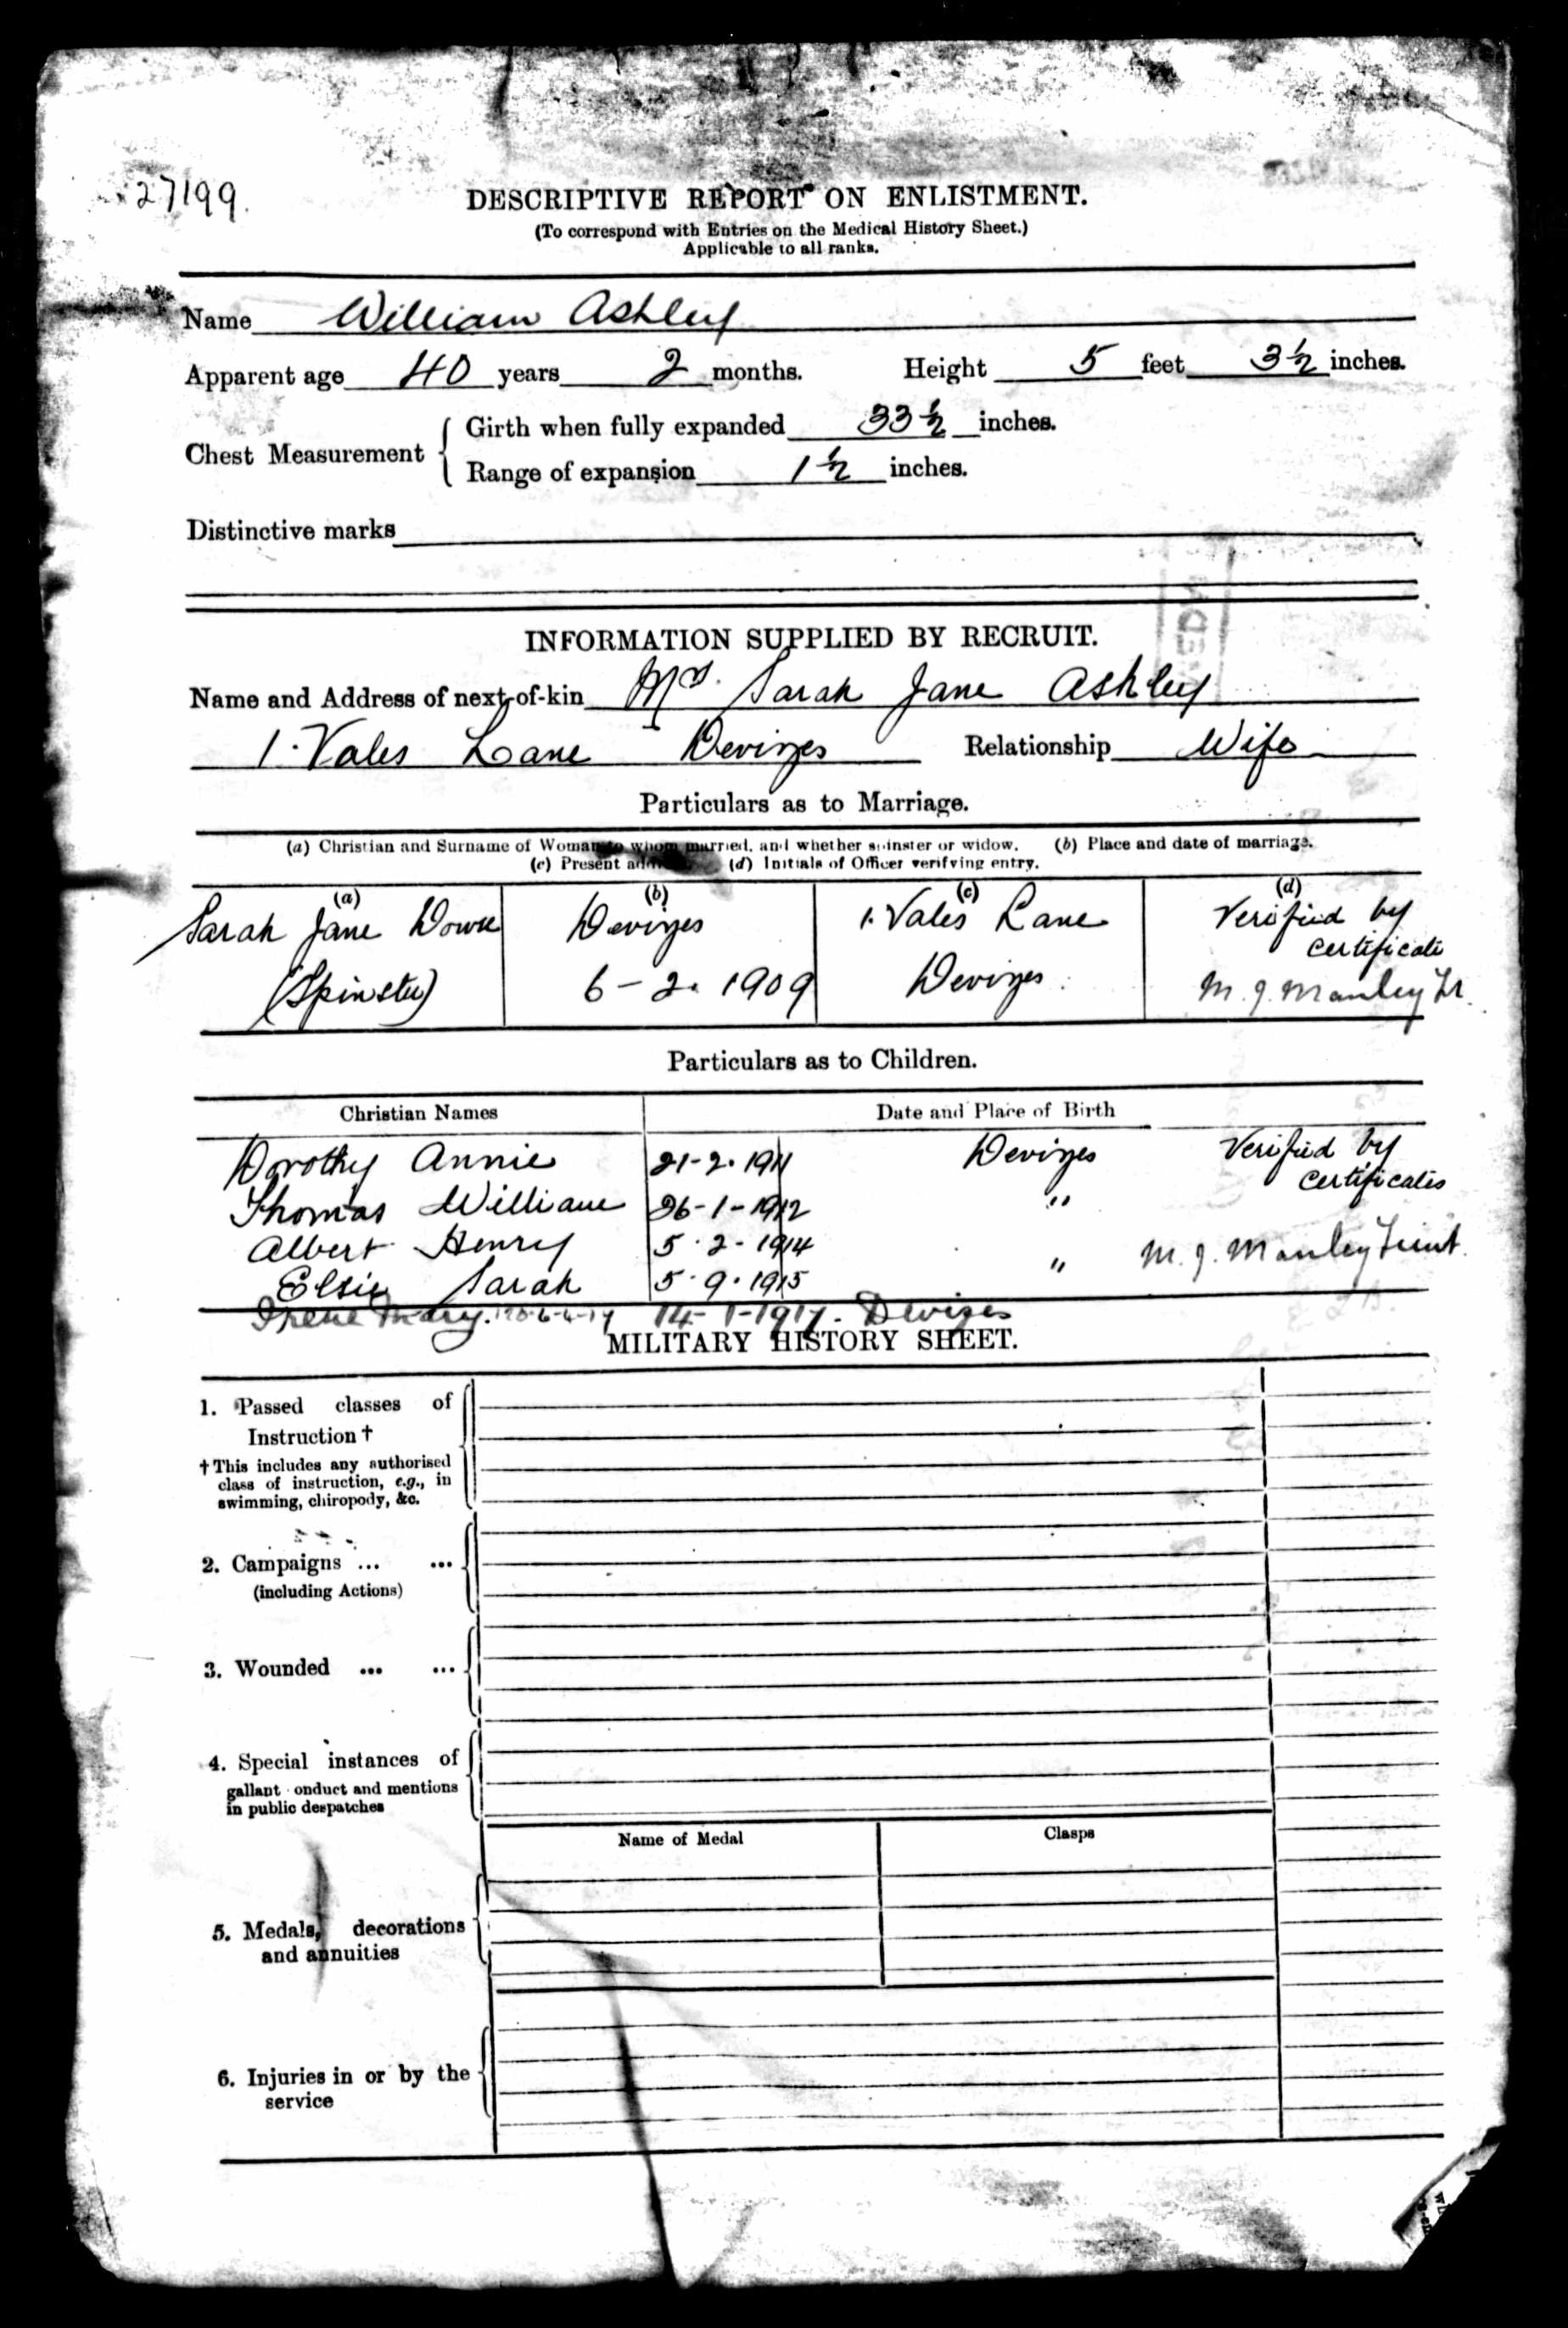 27199.
DESCRIPTIVE REPORT ON ENLISTMENT.
(To correspond with Entries on the Medical History Sheet.)
Applicable to all ranks.
Name William Ashley
Apparent age 40 years 2 months. Height 5 feet 3½ inches.
Chest Measurement { Girth when fully expanded 33½ inches.
Range of expansion 1½ inches.
Distinctive marks
INFORMATION SUPPLIED BY RECRUIT.
Name and Address of next-of-kin Mrs. Sarah Jane Ashley
1. Vales Lane Devizes Relationship Wife
Particulars as to Marriage.
(a) Christian and Surname of Woman to whom married, and whether spinster or widow. (b) Place and date of marriage.
(c) Present address. (d) Initials of Officer verifying entry.
(a) (b) (c) (d)
Sarah Jane Devizes 1. Vales Lane Verified by
certificate
(Spinster) 6-2.1909 Devizes. M. J. Manley Lt.
Particulars as to Children.
Christian Names Date and Place of Birth
Dorothy Annie 21-2.1911 Devizes Verified by
certificates
Thomas William 26-1-1912 "
Albert Henry 5.2-1914 " M. J. Manley Lieut.
Elsie Sarah 5.9.1915
Irene Mary. 14-1-1917. Devizes
MILITARY HISTORY SHEET.
1. Passed classes of
Instruction †
† This includes any authorised
class of instruction, e.g., in
swimming, chiropody, &c.
2. Campaigns ... ...
(including Actions)
3. Wounded ... ...
4. Special instances of
gallant onduct and mentions
in public despatches
Name of Medal Clasps
5. Medals, decorations
and annuities
6. Injuries in or by the
service